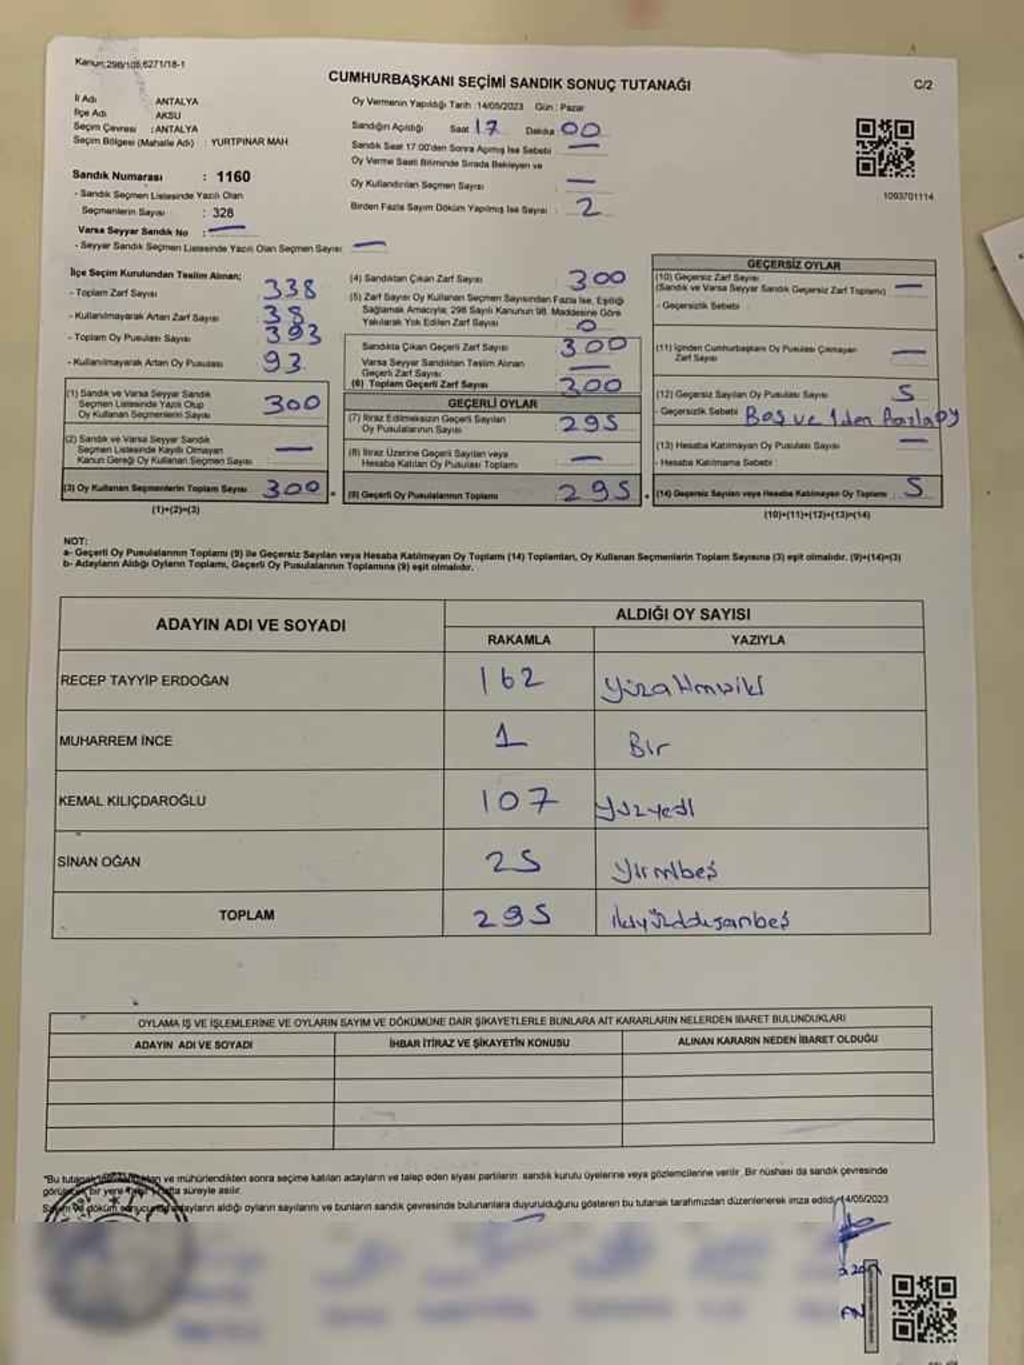 Kanun:298/105,6271/18-1
CUMHURBAŞKANI SEÇİMİ SANDIK SONUÇ TUTANAĞI
C/2
İl Adı ANTALYA
İlçe Adı AKSU
Seçim Çevresi : ANTALYA
Seçim Bölgesi (Mahalle Adı) : YURTPINAR MAH
Oy Vermenin Yapıldığı Tarih : 14/05/2023 Gün : Pazar
Sandığın Açıldığı Saat 17 Dakika 00
Sandık Saat 17:00'den Sonra Açılmış İse Sebebi —
Oy Verme Saati Bitiminde Sırada Bekleyen ve
Oy Kullandırılan Seçmen Sayısı —
Birden Fazla Sayım Döküm Yapılmış İse Sayısı : 2
1093701114
Sandık Numarası : 1160
- Sandık Seçmen Listesinde Yazılı Olan
Seçmenlerin Sayısı : 328
Varsa Seyyar Sandık No : —
- Seyyar Sandık Seçmen Listesinde Yazılı Olan Seçmen Sayısı : —
İlçe Seçim Kurulundan Teslim Alınan;
- Toplam Zarf Sayısı 338
- Kullanılmayarak Artan Zarf Sayısı 38
- Toplam Oy Pusulası Sayısı 393
- Kullanılmayarak Artan Oy Pusulası 93
(1) Sandık ve Varsa Seyyar Sandık
Seçmen Listesinde Yazılı Olup
Oy Kullanan Seçmenlerin Sayısı 300
(2) Sandık ve Varsa Seyyar Sandık
Seçmen Listesinde Kayıtlı Olmayan
Kanun Gereği Oy Kullanan Seçmen Sayısı —
(3) Oy Kullanan Seçmenlerin Toplam Sayısı 300
(1)+(2)=(3)
(4) Sandıktan Çıkan Zarf Sayısı 300
(5) Zarf Sayısı Oy Kullanan Seçmen Sayısından Fazla İse, Eşitliği
Sağlamak Amacıyla; 298 Sayılı Kanunun 98. Maddesine Göre
Yakılarak Yok Edilen Zarf Sayısı 0
Sandıkta Çıkan Geçerli Zarf Sayısı 300
Varsa Seyyar Sandıktan Teslim Alınan
Geçerli Zarf Sayısı —
(6) Toplam Geçerli Zarf Sayısı 300
GEÇERLİ OYLAR
(7) İtiraz Edilmeksizin Geçerli Sayılan
Oy Pusulalarının Sayısı 295
(8) İtiraz Üzerine Geçerli Sayılan veya
Hesaba Katılan Oy Pusulası Toplamı —
(9) Geçerli Oy Pusulalarının Toplamı 295
GEÇERSİZ OYLAR
(10) Geçersiz Zarf Sayısı
(Sandık ve Varsa Seyyar Sandık Geçersiz Zarf Toplamı) —
- Geçersizlik Sebebi :
(11) İçinden Cumhurbaşkanı Oy Pusulası Çıkmayan
Zarf Sayısı —
(12) Geçersiz Sayılan Oy Pusulası Sayısı 5
- Geçersizlik Sebebi Boş ve 1den fazla oy
(13) Hesaba Katılmayan Oy Pusulası Sayısı —
- Hesaba Katılmama Sebebi :
(14) Geçersiz Sayılan veya Hesaba Katılmayan Oy Toplamı 5
(10)+(11)+(12)+(13)=(14)
NOT:
a- Geçerli Oy Pusulalarının Toplamı (9) ile Geçersiz Sayılan veya Hesaba Katılmayan Oy Toplamı (14) Toplamları, Oy Kullanan Seçmenlerin Toplam Sayısına (3) eşit olmalıdır. (9)+(14)=(3)
b- Adayların Aldığı Oyların Toplamı, Geçerli Oy Pusulalarının Toplamına (9) eşit olmalıdır.
ADAYIN ADI VE SOYADI
ALDIĞI OY SAYISI
RAKAMLA YAZIYLA
RECEP TAYYİP ERDOĞAN 162 Yüzaltmışiki
MUHARREM İNCE 1 Bir
KEMAL KILIÇDAROĞLU 107 Yüzyedi
SİNAN OĞAN 25 Yirmibeş
TOPLAM 295 ikiyüzdoksanbeş
OYLAMA İŞ VE İŞLEMLERİNE VE OYLARIN SAYIM VE DÖKÜMÜNE DAİR ŞİKAYETLERLE BUNLARA AİT KARARLARIN NELERDEN İBARET BULUNDUKLARI
ADAYIN ADI VE SOYADI İHBAR İTİRAZ VE ŞİKAYETİN KONUSU ALINAN KARARIN NEDEN İBARET OLDUĞU
"Bu tutanak ve mühürlendikten sonra seçime katılan adayların ve talep eden siyasi partilerin sandık kurulu üyelerine veya gözlemcilerine verilir. Bir nüshası da sandık çevresinde
bir yere hafta süreyle asılır.
Sayım ve döküm sonucunda adayların aldığı oyların sayılarını ve bunların sandık çevresinde bulunanlara duyurulduğunu gösteren bu tutanak tarafımızdan düzenlenerek imza edildi. 14/05/2023